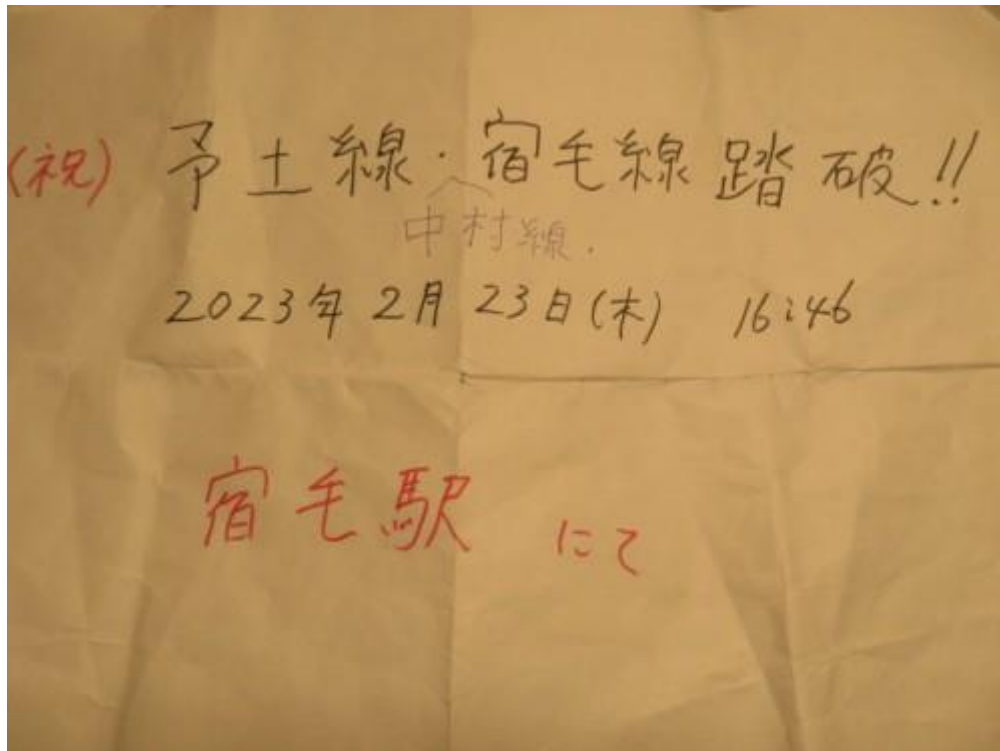 (祝) 予土線・宿毛線踏破!!
中村線・
2023年2月23日(木) 16:46
宿毛駅 にて